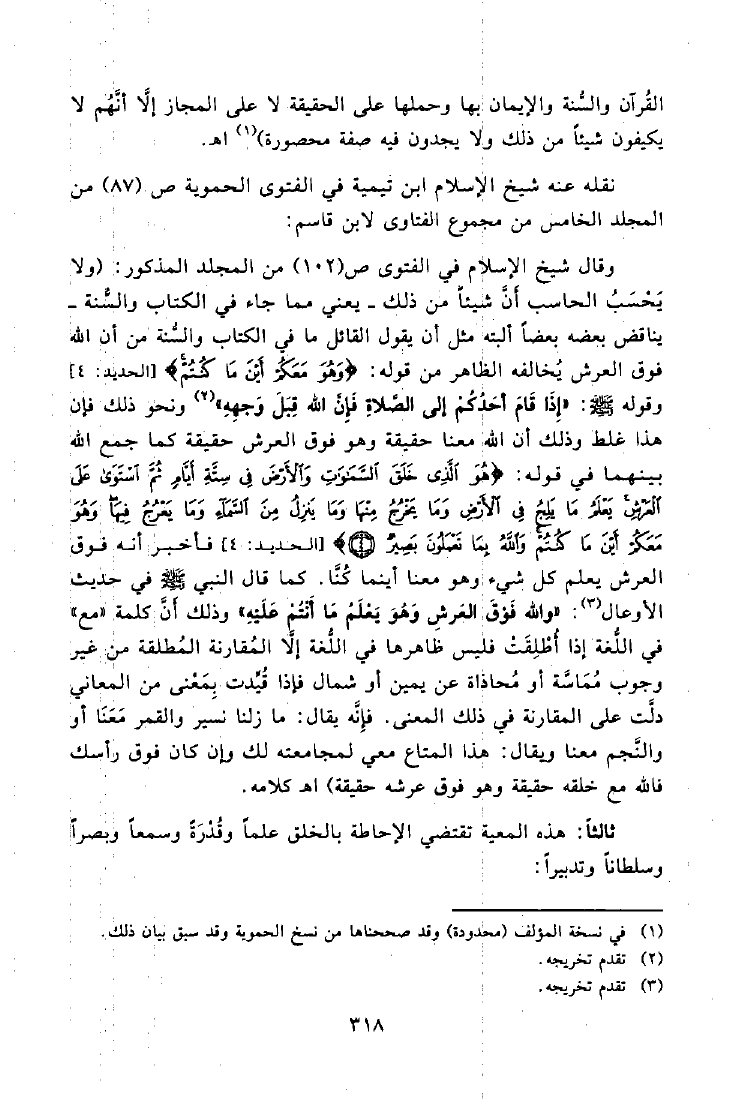 القُرآن والسُّنة والإيمان بها وحملها على الحقيقة لا على المجاز إلَّا أنَّهُم لا
يكيفون شيئاً من ذلك ولا يجدون فيه صفة محصورة)(١) اهـ.
نقله عنه شيخ الإسلام ابن تيمية في الفتوى الحموية ص (٨٧) من
المجلد الخامس من مجموع الفتاوى لابن قاسم:
وقال شيخ الإسلام في الفتوى ص(١٠٢) من المجلد المذكور: (ولا
يَحْسَبُ الحاسب أنَّ شيئاً من ذلك ـ يعني مما جاء في الكتاب والسُّنة ـ
يناقض بعضه بعضاً ألبته مثل أن يقول القائل ما في الكتاب والسُّنة من أن الله
فوق العرش يُخالفه الظاهر من قوله: ﴿وَهُوَ مَعَكُمْ أَيْنَ مَا كُنتُمْ﴾ [الحديد: ٤]
وقوله ﷺ: «إِذَا قَامَ أَحَدُكُمْ إلى الصَّلاةِ فَإنَّ الله قِبَلَ وَجههِ»(٢) ونحو ذلك فإن
هذا غلط وذلك أن الله معنا حقيقة وهو فوق العرش حقيقة كما جمع الله
بينهما في قوله: ﴿هُوَ الَّذِى خَلَقَ السَّمَٰوَٰتِ وَالْأَرْضَ فِى سِتَّةِ أَيَّامٍ ثُمَّ اسْتَوَىٰ عَلَى
الْعَرْشِ يَعْلَمُ مَا يَلِجُ فِى الْأَرْضِ وَمَا يَخْرُجُ مِنْهَا وَمَا يَنزِلُ مِنَ السَّمَاءِ وَمَا يَعْرُجُ فِيهَا وَهُوَ
مَعَكُمْ أَيْنَ مَا كُنتُمْ وَاللَّهُ بِمَا تَعْمَلُونَ بَصِيرٌ ۝٤﴾ [الحديد: ٤] فأخبر أنه فوق
العرش يعلم كل شيء وهو معنا أينما كُنَّا. كما قال النبي ﷺ في حديث
الأوعال(٣): «والله فَوْقَ العَرش وَهُوَ يَعْلَمُ مَا أَنْتُمْ عَلَيْهِ» وذلك أنَّ كلمة «مع»
في اللُّغة إذا أُطْلِقَتْ فليس ظاهرها في اللغة إلَّا المُقارنة المُطلقة من غير
وجوب مُمَاسَّة أو مُحاذاة عن يمين أو شمال فإذا قُيِّدت بِمَعْنى من المعاني
دلَّت على المقارنة في ذلك المعنى. فإنَّه يقال: ما زلنا نسير والقمر مَعَنَا أو
والنَّجم معنا ويقال: هذا المتاع معي لمجامعته لك وإن كان فوق رأسك
فالله مع خلقه حقيقة وهو فوق عرشه حقيقة) اهـ كلامه.
ثالثاً: هذه المعية تقتضي الإحاطة بالخلق علماً وقُدْرَةً وسمعاً وبصراً
وسلطاناً وتدبيراً:
(١) في نسخة المؤلف (محدودة) وقد صححناها من نسخ الحموية وقد سبق بيان ذلك.
(٢) تقدم تخريجه.
(٣) تقدم تخريجه.
٣١٨